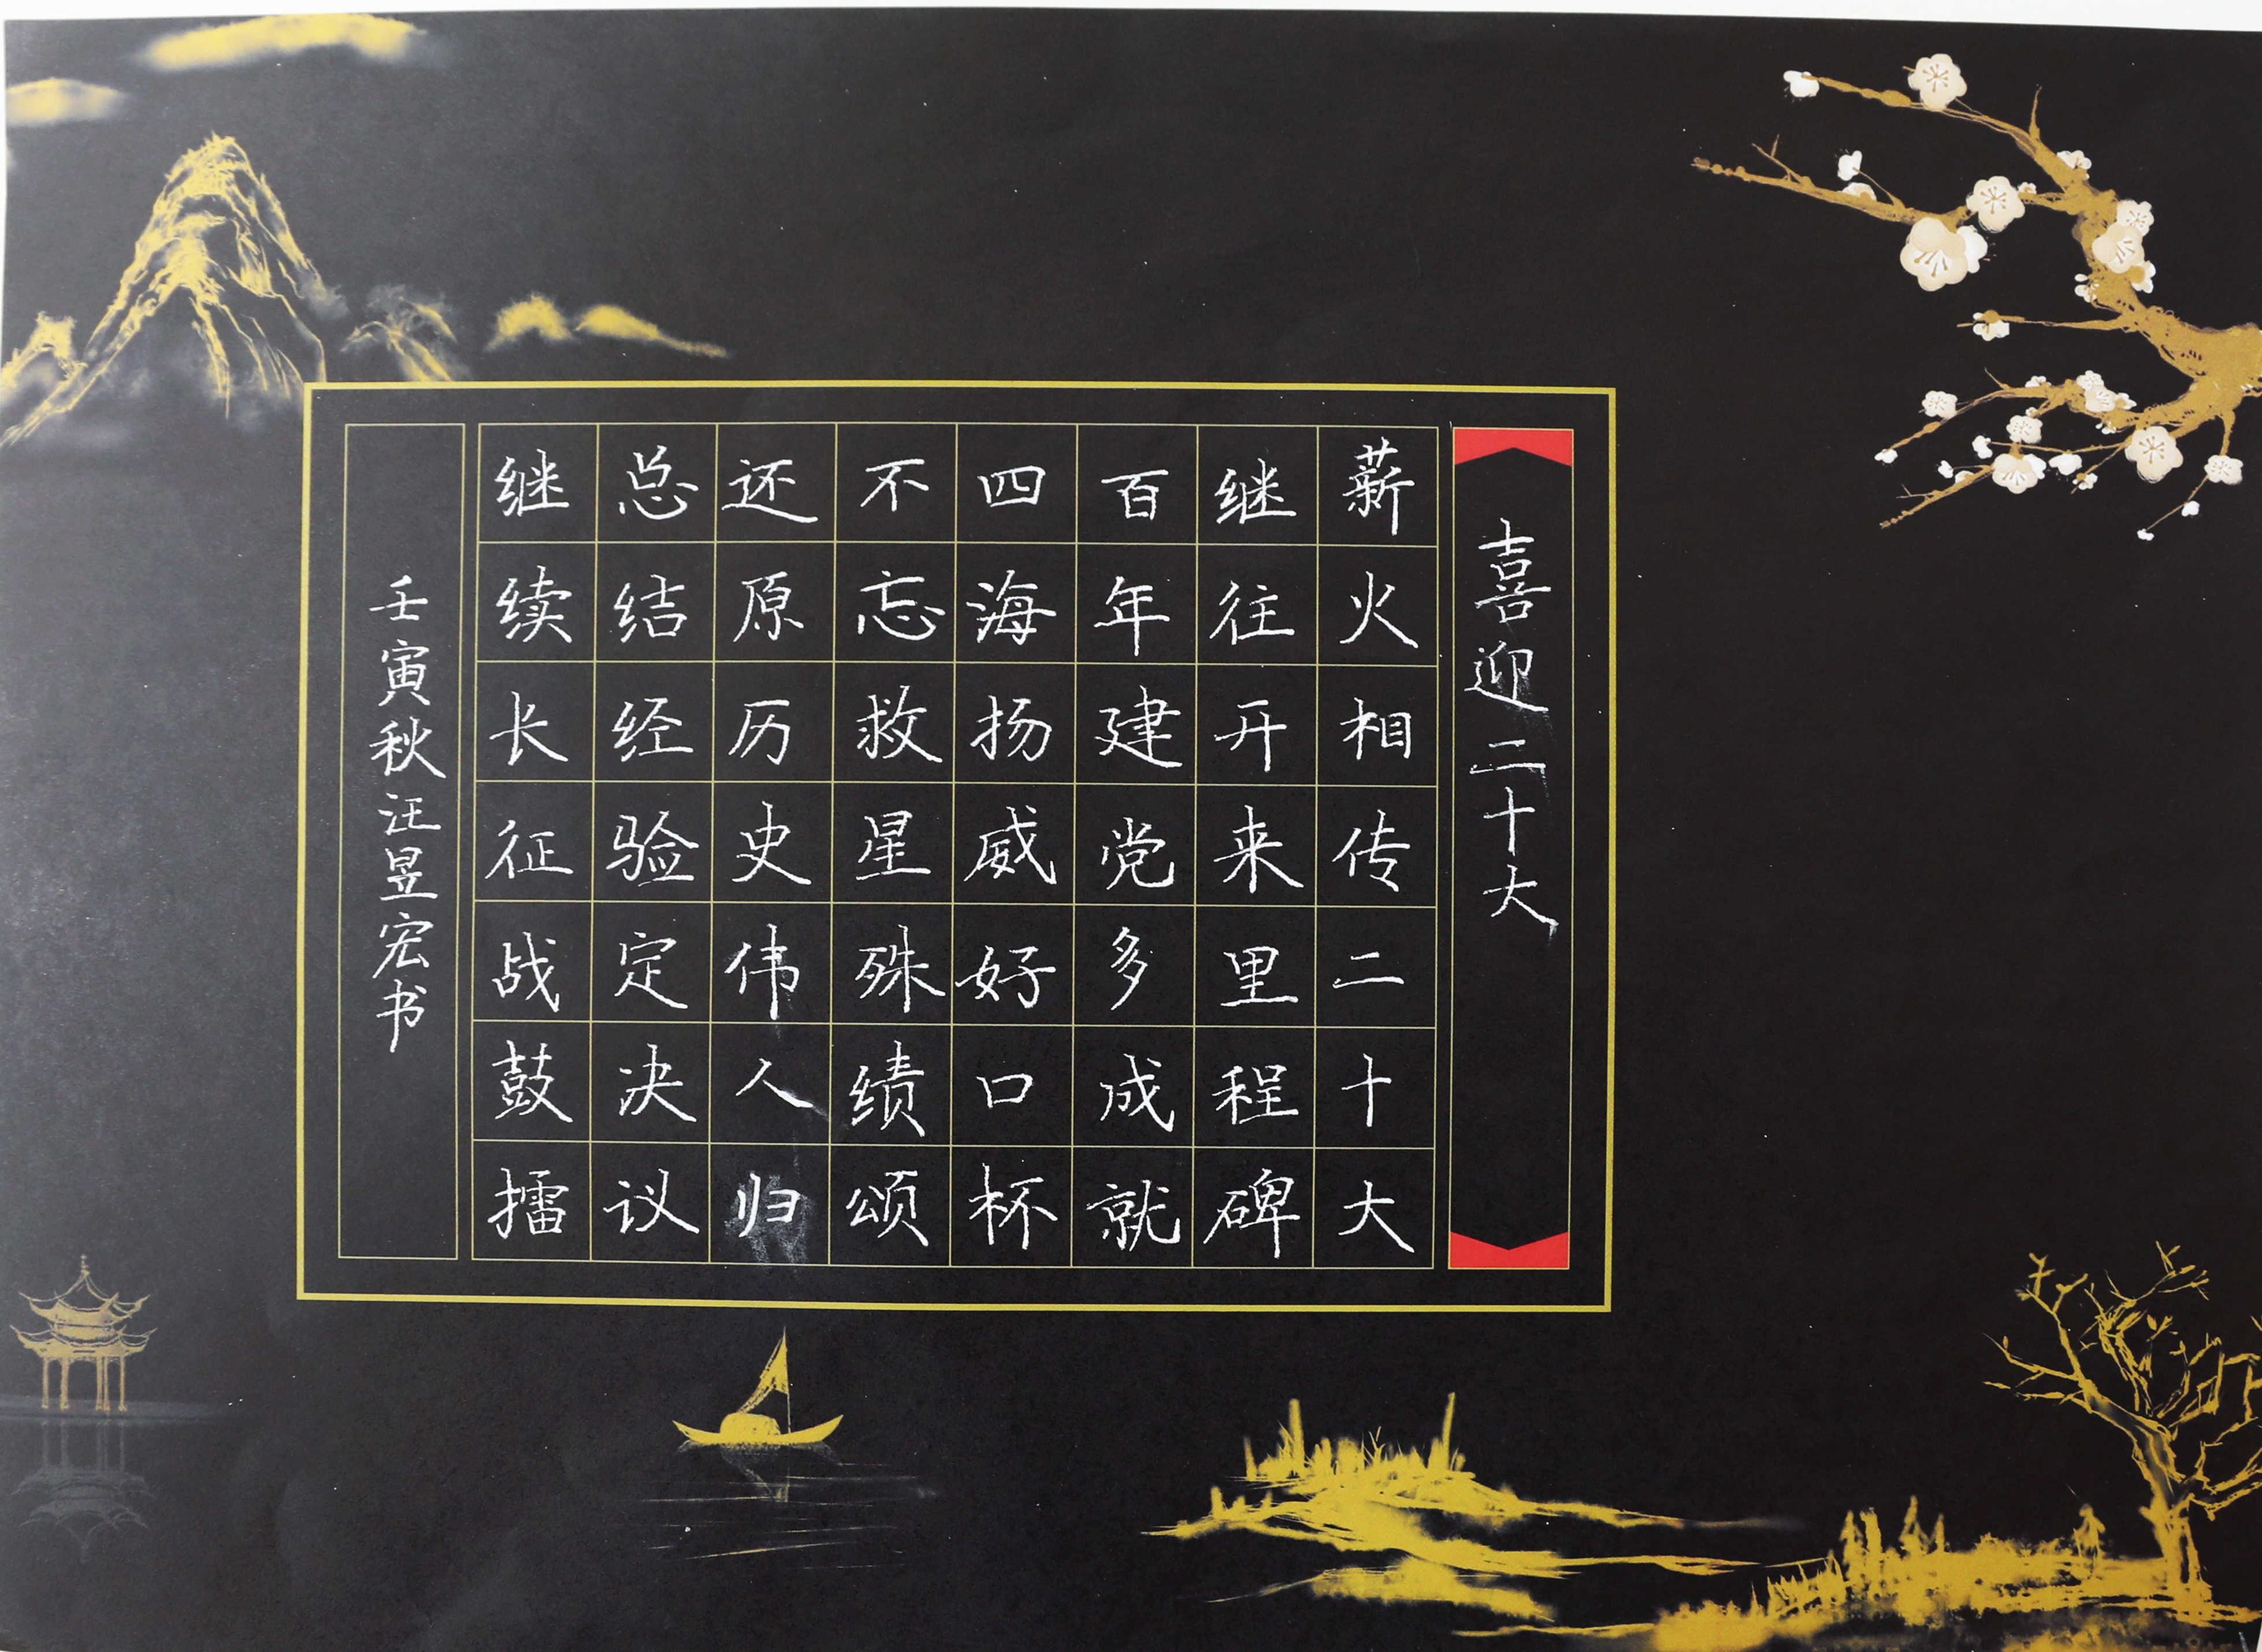 喜迎二十大
薪火相传二十大
继往开来里程碑
百年建党多成就
四海扬威好口杯
不忘救星殊绩颂
还原历史伟人归
总结经验定决议
继续长征战鼓擂
壬寅秋汪昱宏书